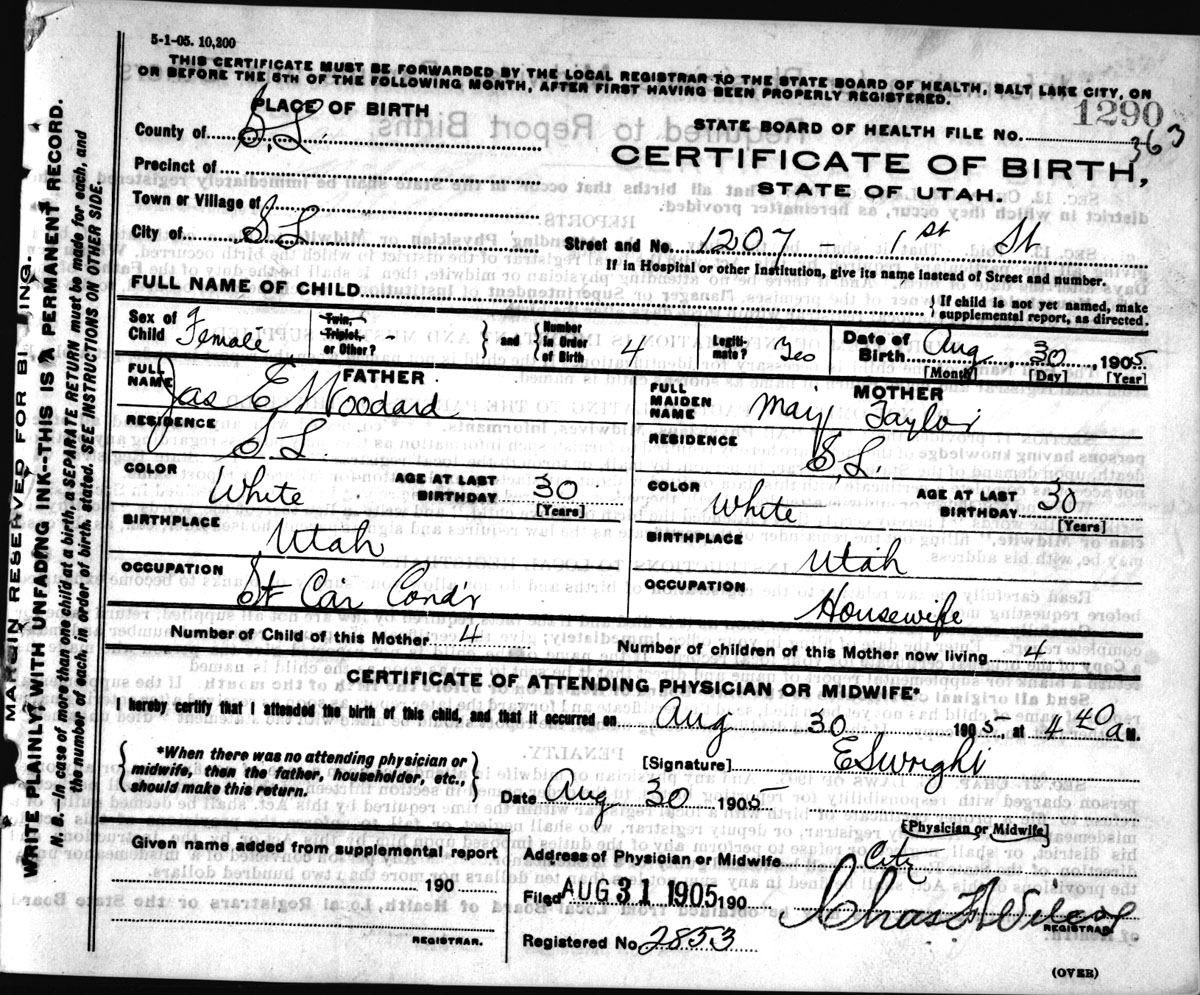 5-1-05. 10,200
THIS CERTIFICATE MUST BE FORWARDED BY THE LOCAL REGISTRAR TO THE STATE BOARD OF HEALTH, SALT LAKE CITY, ON
OR BEFORE THE 5TH OF THE FOLLOWING MONTH, AFTER FIRST HAVING BEEN PROPERLY REGISTERED.
1290
PLACE OF BIRTH
STATE BOARD OF HEALTH FILE NO. 363
County of S.L.
CERTIFICATE OF BIRTH,
Precinct of
STATE OF UTAH.
Town or Village of
City of S L
Street and No. 1207 1st St
If in Hospital or other Institution, give its name instead of Street and number.
FULL NAME OF CHILD
{ If child is not yet named, make
supplemental report, as directed.
Sex of Child Female
Twin, Triplet, or Other? -
and { Number in Order of Birth 4
Legitimate? Yes
Date of Birth Aug 30 1905
[Month] [Day] [Year]
FATHER
FULL NAME Jas E Woodard
MOTHER
FULL MAIDEN NAME May Taylor
RESIDENCE S L.
RESIDENCE S L.
COLOR White
AGE AT LAST BIRTHDAY 30
[Years]
COLOR White
AGE AT LAST BIRTHDAY 30
[Years]
BIRTHPLACE Utah
BIRTHPLACE Utah
OCCUPATION St Car Cond'r
OCCUPATION Housewife
Number of Child of this Mother 4
Number of children of this Mother now living 4
CERTIFICATE OF ATTENDING PHYSICIAN OR MIDWIFE*
I hereby certify that I attended the birth of this child, and that it occurred on Aug 30 1905, at 4 40 a M.
{ *When there was no attending physician or
midwife, then the father, householder, etc.,
should make this return. }
[Signature] E S Wright
Date Aug 30 1905
(Physician or Midwife)
Given name added from supplemental report
190
REGISTRAR.
Address of Physician or Midwife City
Filed AUG 31 1905 190
Chas
REGISTRAR
Registered No. 2853
(OVER)
MARGIN RESERVED FOR BINDING.
WRITE PLAINLY, WITH UNFADING INK--THIS IS A PERMANENT RECORD.
N. B.--In case of more than one child at a birth, a SEPARATE RETURN must be made for each, and
the number of each, in order of birth, stated. SEE INSTRUCTIONS ON OTHER SIDE.